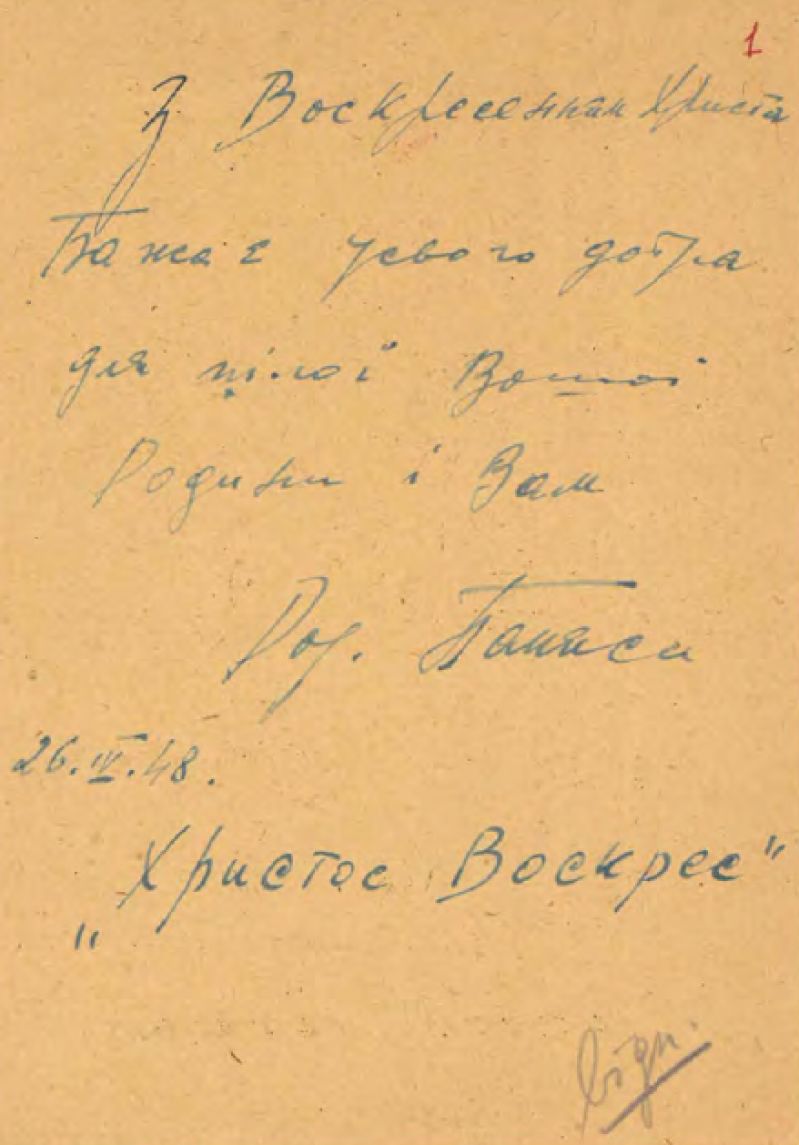 1
З Воскресенням Христа
Бажає усього добра
для цілої Вашої
Родини і Вам
Род.
26.IV.48.
„Христос Воскрес"
відп.